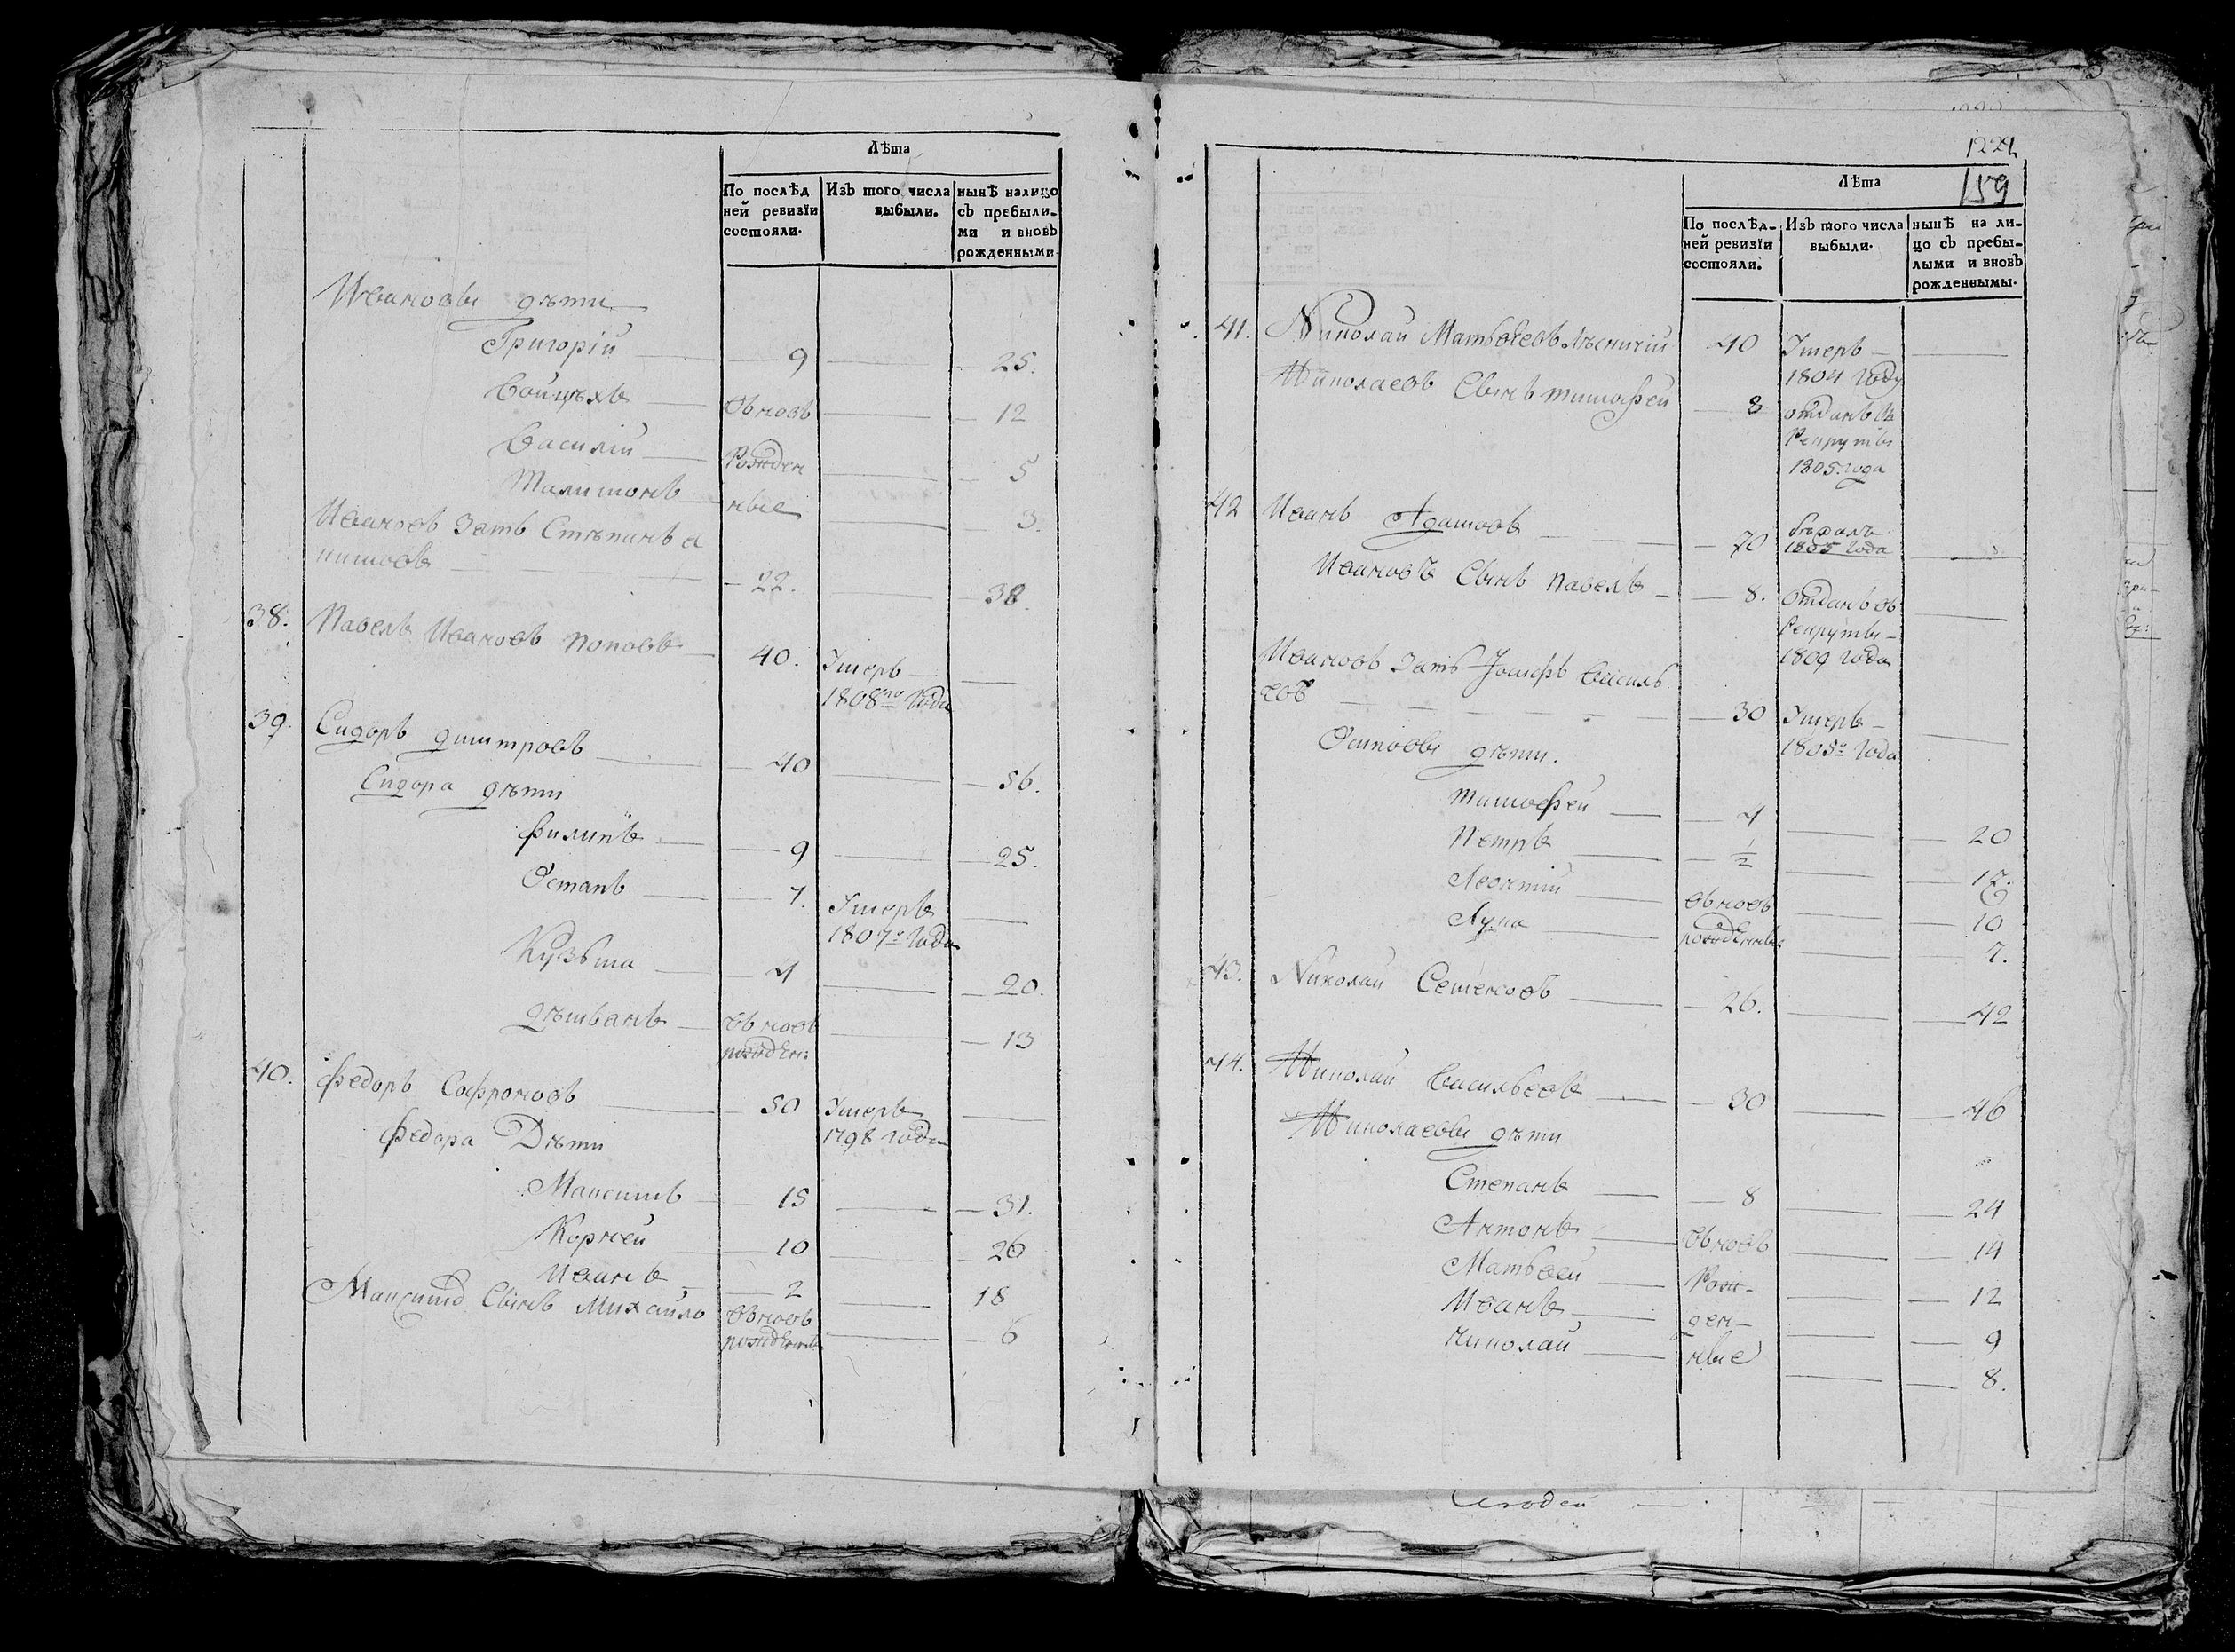 Лѣта
По послѣд Изъ того числа нынѣ налицо
ней ревизїи выбыли. съ пребыли-
состояли. ми и вновь
рожденными
Ивановы дѣти
Григорій 9 25.
Войцѣхъ Вновь 12
Василій Рожден 5
Филимонъ ные 3.
Ивановъ Зать Стѣпанъ а
кимовъ 22. 38.
38. Павелъ Ивановъ Поповъ 40. Умеръ
1808го Года
39. Сидоръ димитровъ 40 56.
Сидора дѣти
Филипъ 9 25.
Остапъ 7. Умеръ
1807о Года
Кузьма 4 20.
дѣмьанъ Вновь 13
рожден:
40. Федоръ Софроновъ 50 Умеръ
Федора Дѣти 1798 года
Максимъ 15 31.
Корней 10 26
Иванъ 2 18
Максима Сынъ Михайло Вновь 6
рожденны
1221
159
Лѣта
По послѣд- Изъ того числа нынѣ на ли-
ней ревизїи выбыли. цо съ пребы-
состояли. лыми и вновь
рожденнымы.
41. Николай Матвѣевъ Лѣсничій 40 Умеръ
1804 Году
Николаевъ Сынъ тимофей 8 отданъ въ
Рекруты
1805. года
42 Иванъ Адамовъ 70 бѣжалъ
1805 Года
Ивановъ Сынъ Павелъ 8. Отданъ въ
Рекруты
1809 Года
Ивановъ Зать Іосифъ Василь
евъ 30 Умеръ
1805о Года
Осиповы дѣти.
тимофей 4 20
Петръ ½ 17.
Леонтій Вновь 10
Лука рожденны 7.
43. Николай Семеновъ 26. 42
44. Николай Васильевъ 30 46
Николаевы дѣти
Степанъ 8 24
Антонъ Вновь 14
Матвей Рож- 12
Иванъ ден- 9
Николай ные 8.